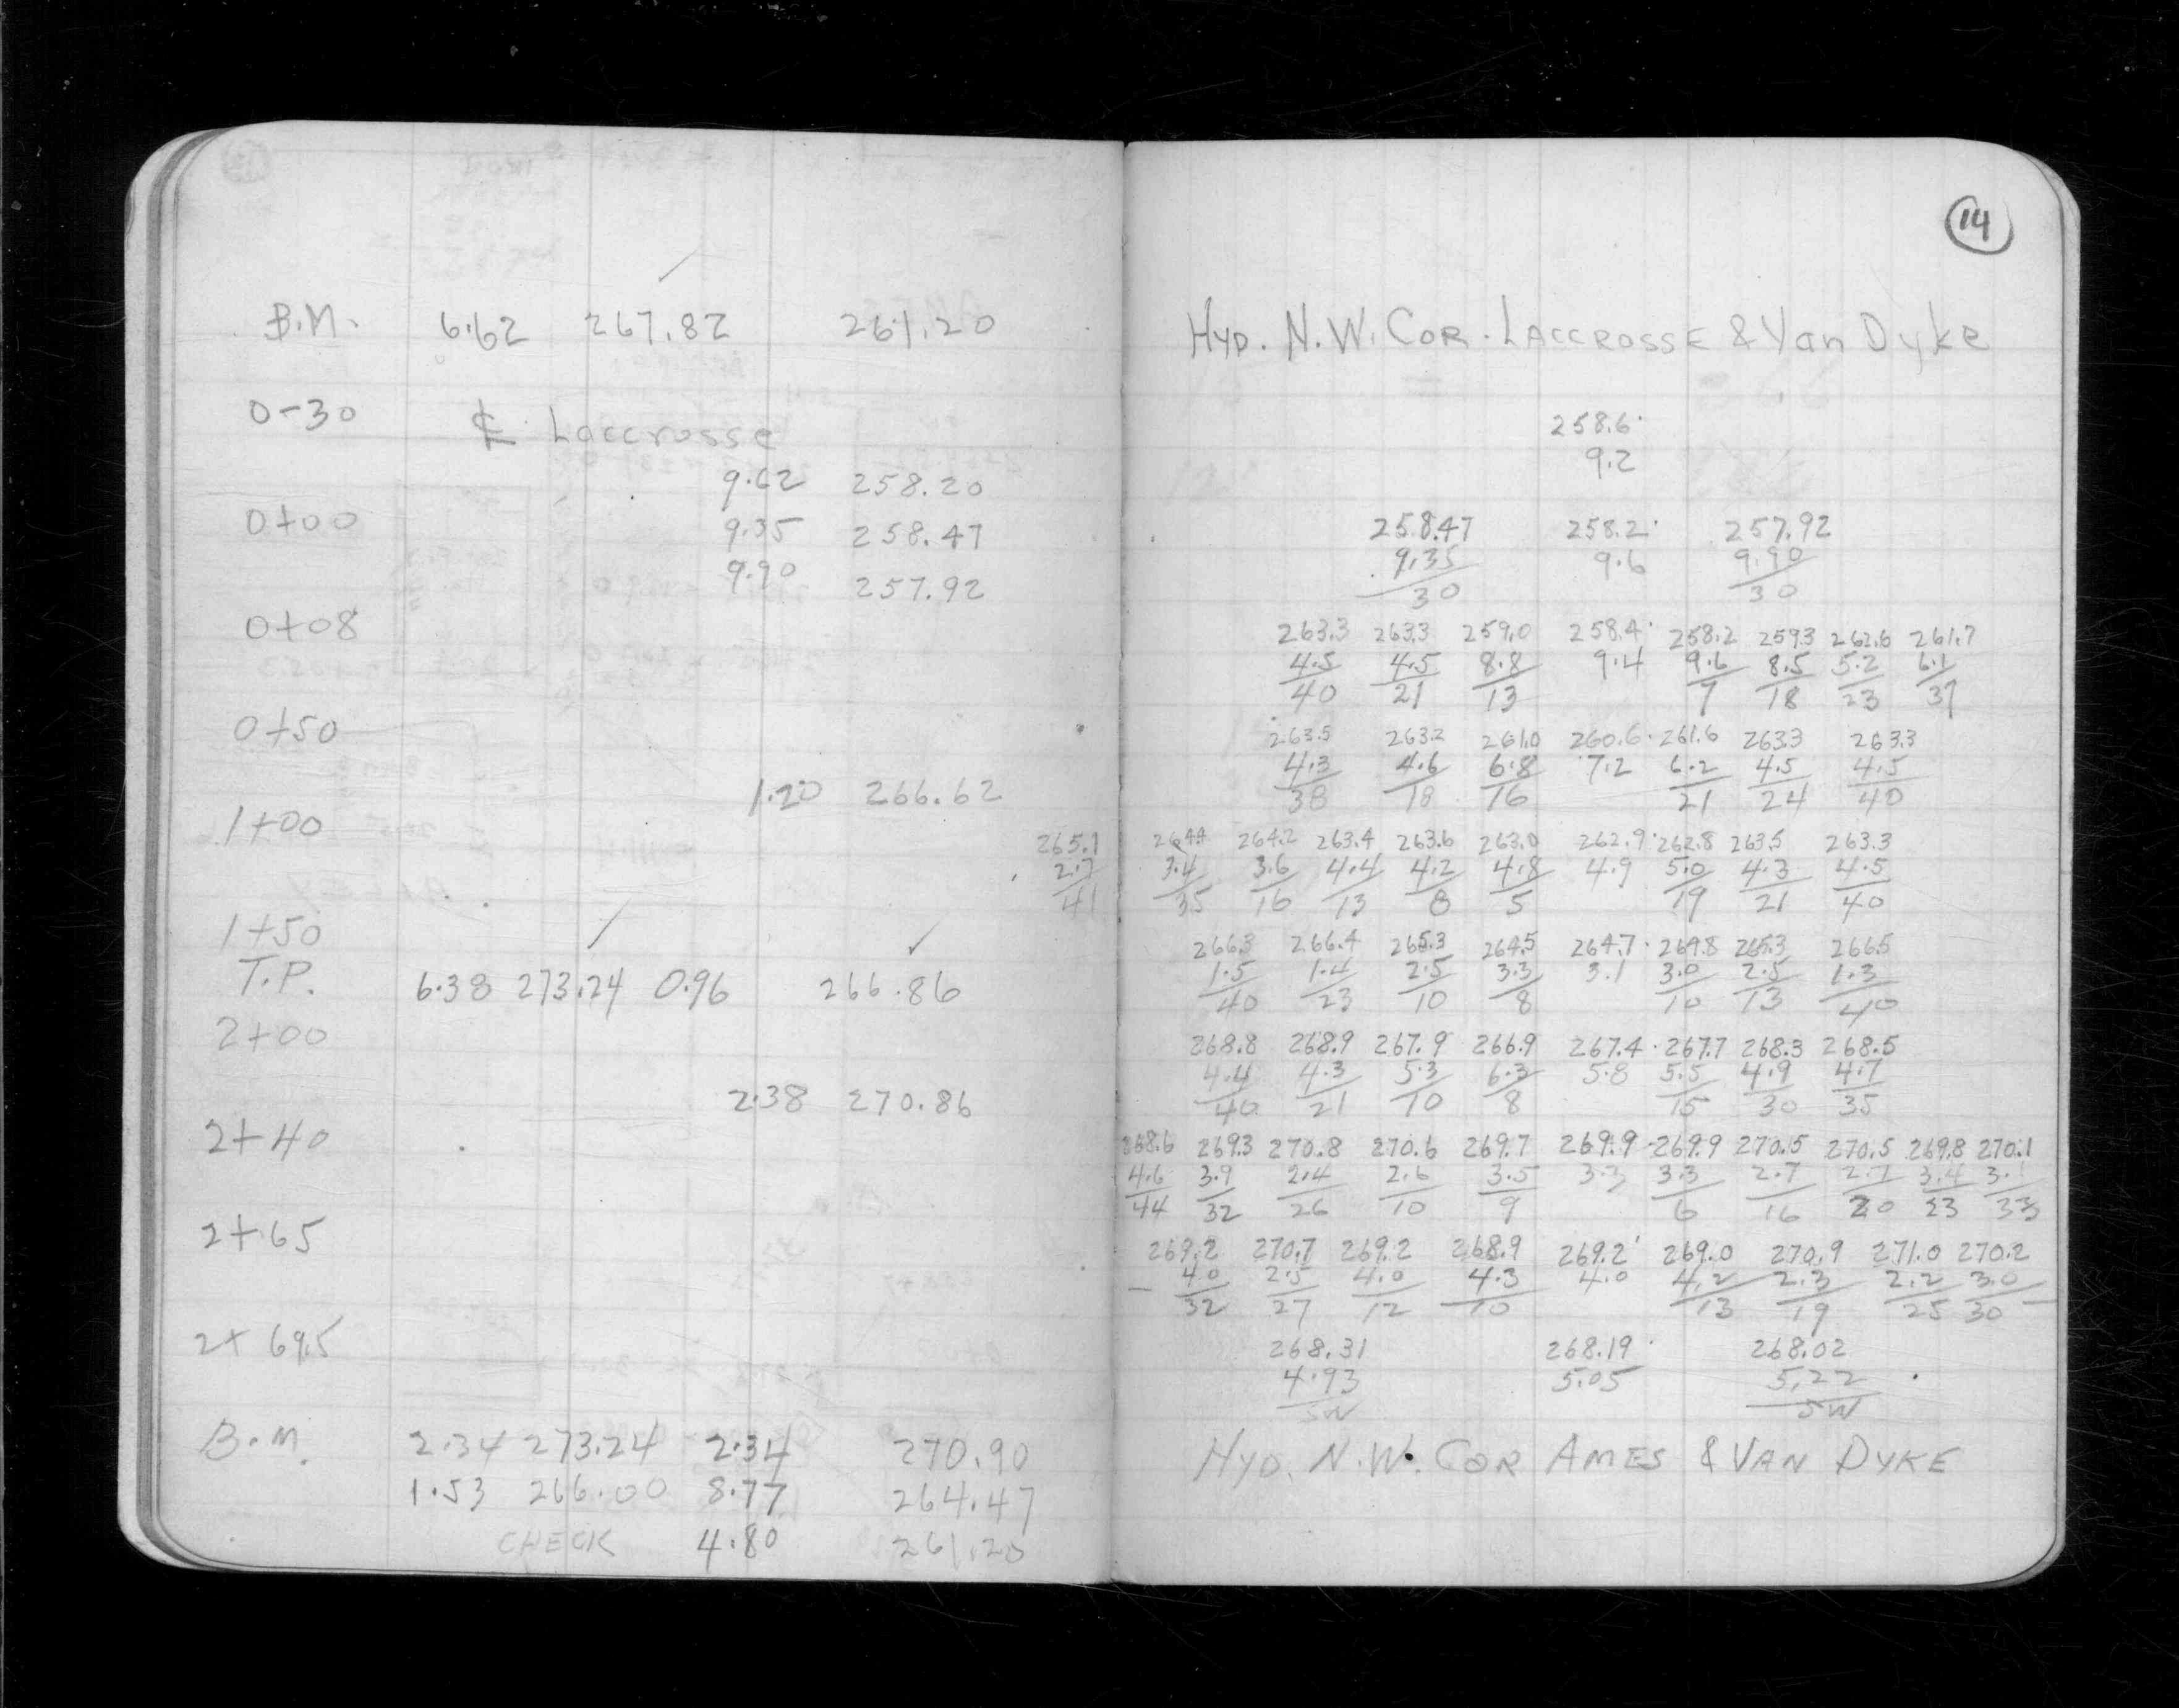 14
B.M. 6.62 267.82 261.20
0-30 ℄ Laccrosse
9.62 258.20
0+00 9.35 258.47
9.90 257.92
0+08
0+50
1.20 266.62
1+00
1+50
T.P. 6.38 273.24 0.96 266.86
2+00
2.38 270.86
2+40
2+65
2+69.5
B.M. 2.34 273.24 2.34 270.90
1.53 266.00 8.77 264.47
CHECK 4.80 261.20
HYD. N.W. COR. LACCROSSE & Van Dyke
258.6
9.2
258.47 258.2 257.92
9.35 9.6 9.90
30 30
263.3 263.3 259.0 258.4 258.2 259.3 262.6 261.7
4.5 4.5 8.8 9.4 9.6 8.5 5.2 6.1
40 21 13 7 18 23 37
263.5 263.2 261.0 260.6 261.6 263.3 263.3
4.3 4.6 6.8 7.2 6.2 4.5 4.5
38 18 16 21 24 40
265.1 264.4 264.2 263.4 263.6 263.0 262.9 262.8 263.5 263.3
2.7 3.4 3.6 4.4 4.2 4.8 4.9 5.0 4.3 4.5
41 35 16 13 8 5 19 21 40
266.3 266.4 265.3 264.5 264.7 264.8 265.3 266.5
1.5 1.4 2.5 3.3 3.1 3.0 2.5 1.3
40 23 10 8 10 13 40
268.8 268.9 267.9 266.9 267.4 267.7 268.3 268.5
4.4 4.3 5.3 6.3 5.8 5.5 4.9 4.7
40 21 10 8 15 30 35
268.6 269.3 270.8 270.6 269.7 269.9 269.9 270.5 270.5 269.8 270.1
4.6 3.9 2.4 2.6 3.5 3.3 3.3 2.7 2.7 3.4 3.1
44 32 26 10 9 6 16 20 23 33
269.2 270.7 269.2 268.9 269.2 269.0 270.9 271.0 270.2
4.0 2.5 4.0 4.3 4.0 4.2 2.3 2.2 3.0
32 27 12 10 13 19 25 30
268.31 268.19 268.02
4.93 5.05 5.22
SW SW
HYD. N.W. COR AMES & VAN DYKE